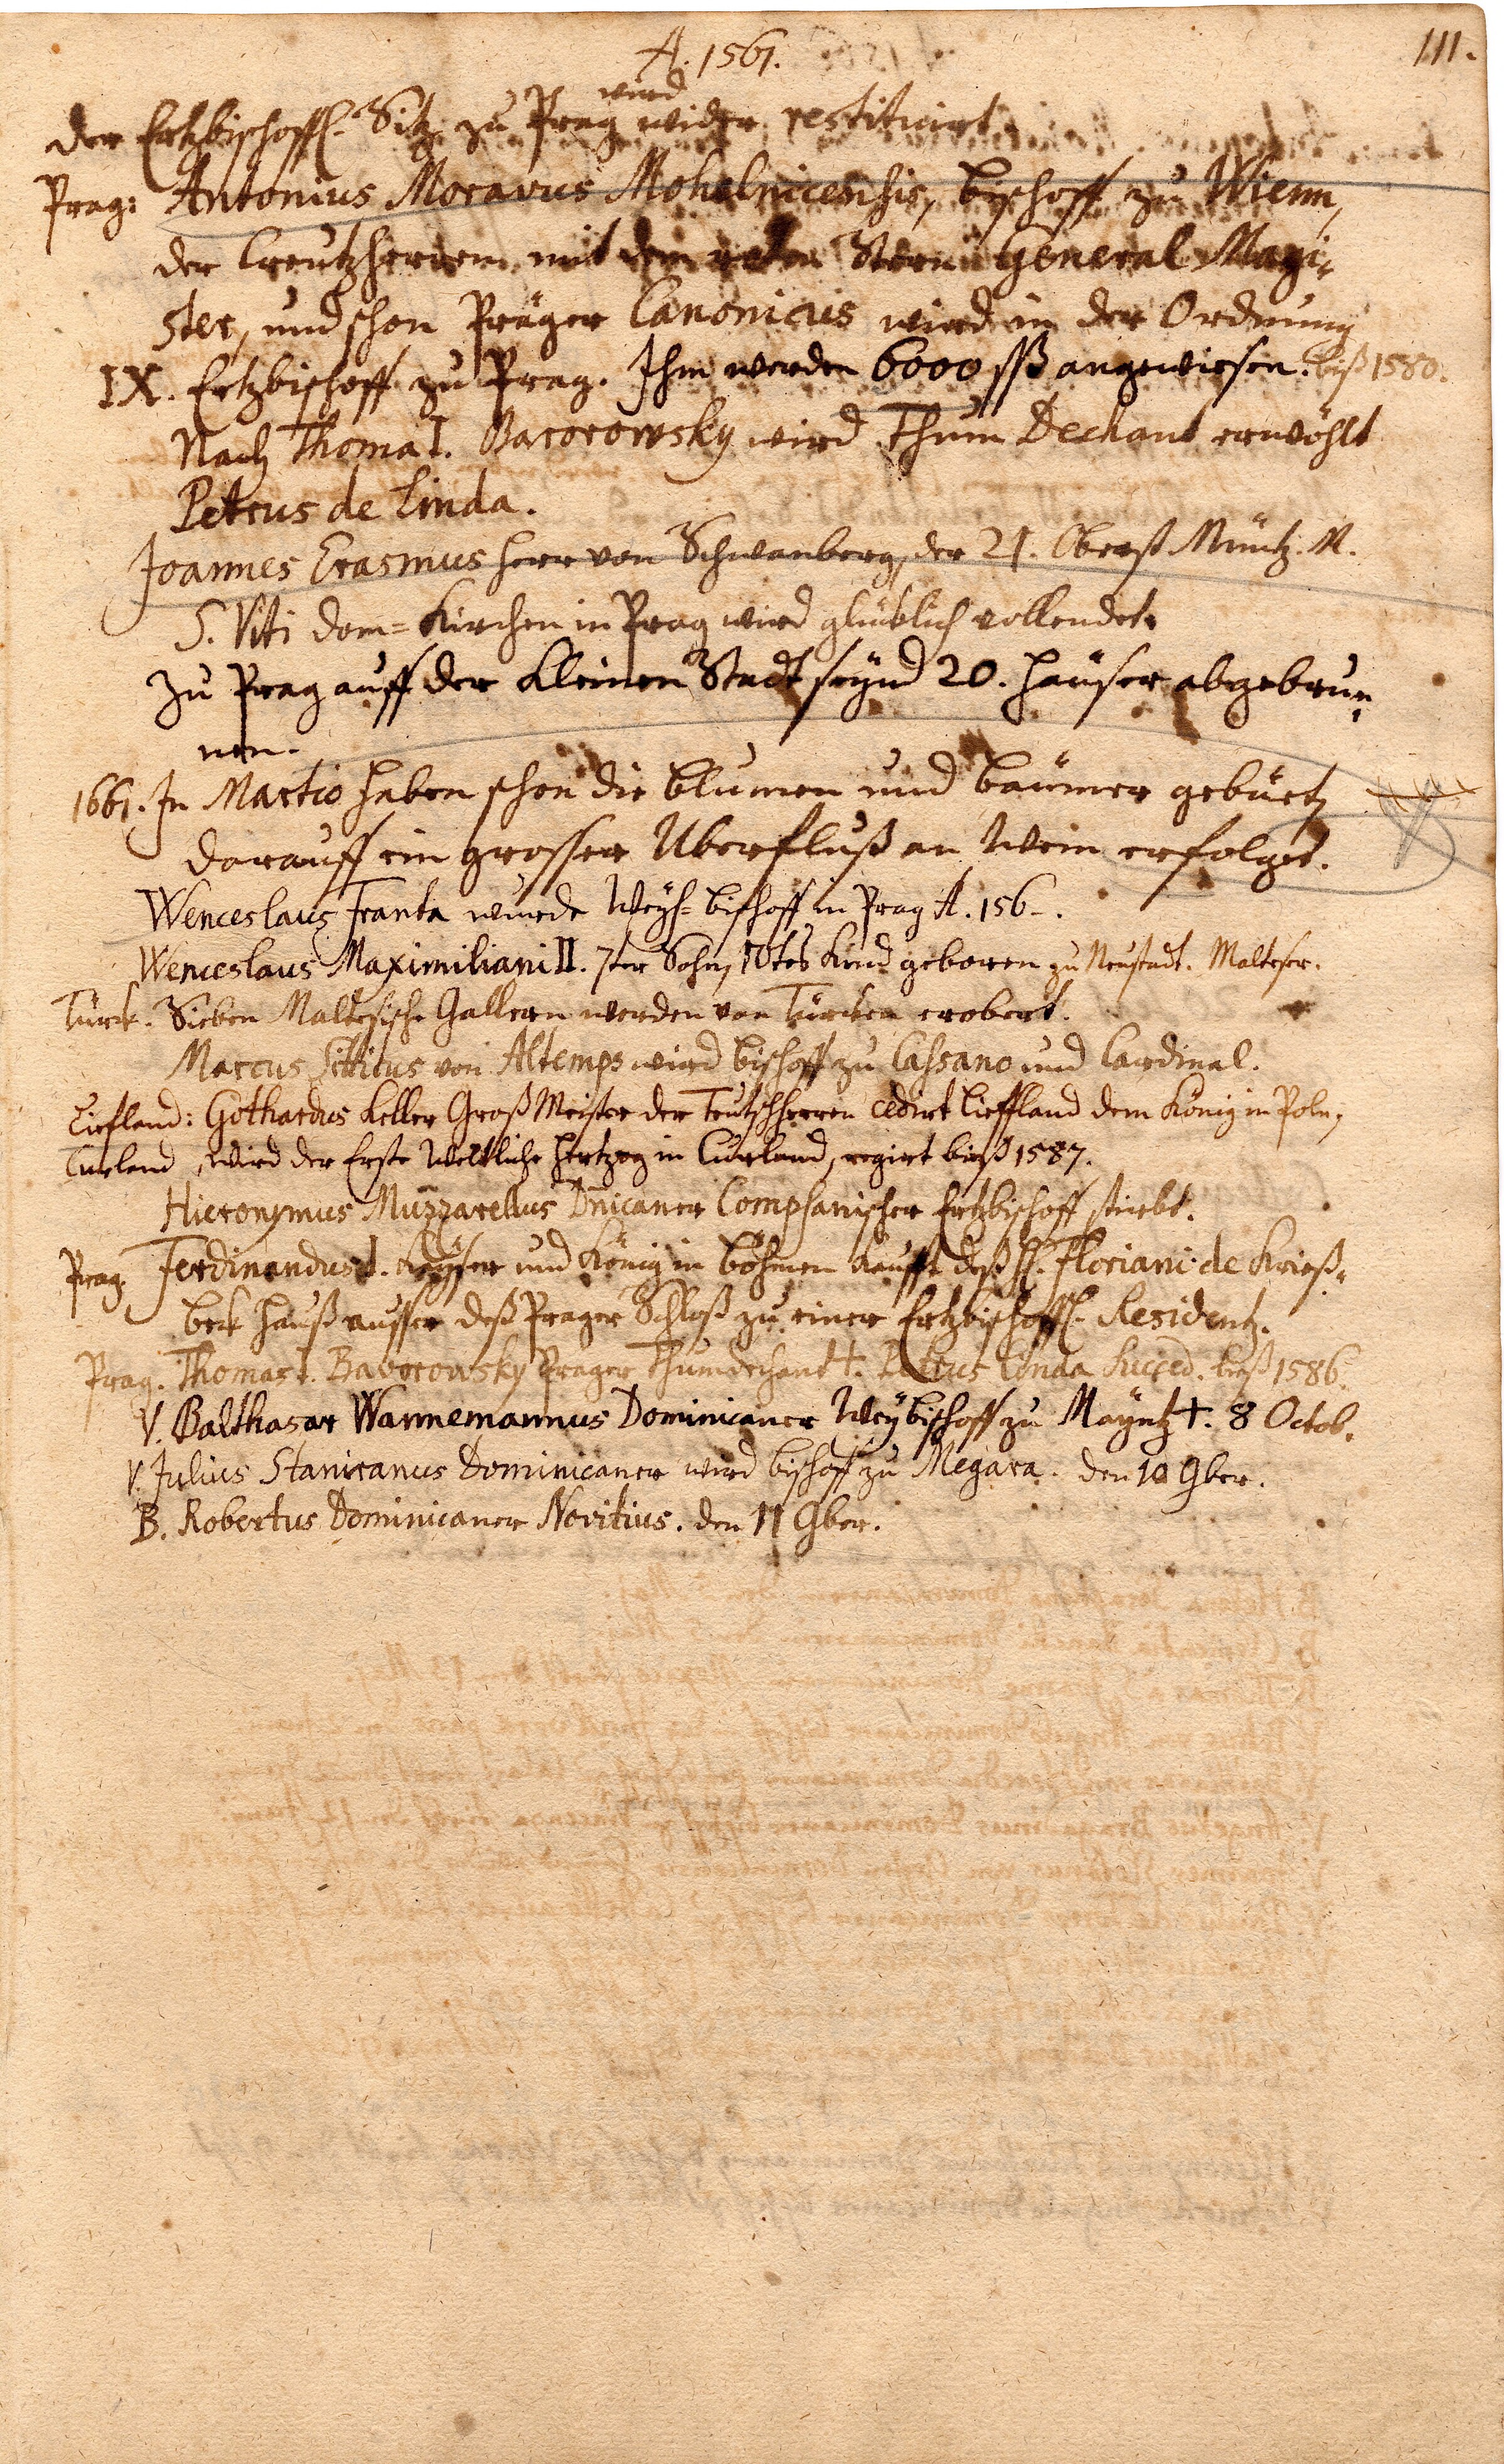 111.
A. 1561.
wird
der Ertzbischoffl. Sitz zu Prag wider restituirt.
Prag: Antonius Moravus Mohelnicensis, bischoff zu Wienn,
der Creutzherren mit dem roten Stern General Magi-
ster, und schon Präger Canonicus wird in der Ordnung
IX. Ertzbischoff zu Prag. Ihm werden 6000 sß angewiesen. biß 1580.
Nach Thoma I. Bavorowsky wird Thum Dechant erwöhlt
Petrus de Linda.
Joannes Erasmus Herr von Schwanberg, der 21. Obrist Müntz. M.
S. Viti dom=Kirchen in Prag wird glüklich vollendet.
Zu Prag auff der Kleinen Stadt seynd 20. Häuser abgebrun-
nen.
1661. In Martio haben schon die blumen und bäumer geblüet,
darauff ein grosser Uberfluß an Wein erfolget.
Wenceslaus Franta wurde Weyh=bischoff in Prag A. 156-.
Wenceslaus Maximiliani II. 7ter Sohn, 10tes Kind geboren zu Neustadt. Malteser.
Türck. Sieben Maltesische Galleren werden von Türcken erobert.
Marcus Sitticus von Altemps wird bischoff zu Cassano und Cardinal.
Liefland: Gothardus Keller Groß Meister der Teutschherren cedirt Lieffland dem König in Poln,
Curland, wird der Erste Weltliche Hertzog in Curland, regirt bieß 1587.
Hieronymus Muzzarellus Dnicaner Compsanischer Ertzbischoff stirbt.
Prag. Ferdinandus I. Keyser und König in böhmen kaufft deß H. Floriani de Krieß-
bek Hauß ausser deß Prager Schloß zu einer Ertzbischoffl. Residentz.
Prag. Thomas I. Bavorowsky Prager Thumdechant †. Petrus Linda succed. bieß 1586.
V. Balthasar Wannemannus Dominicaner Weybischoff zu Mayntz †. 8 Octob.
V. Julius Stanicanus Dominicaner wird bischoff zu Megara. den 10 9ber.
B. Robertus Dominicaner Novitius. den 11 9ber.